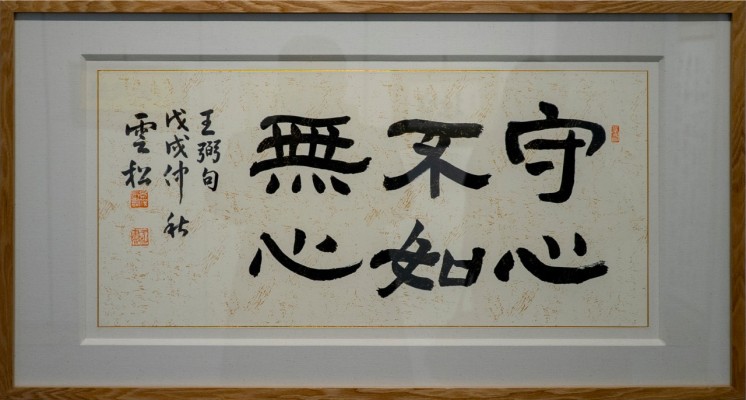 守心
不如
無心
王弼句
戊戌仲秋
雲松